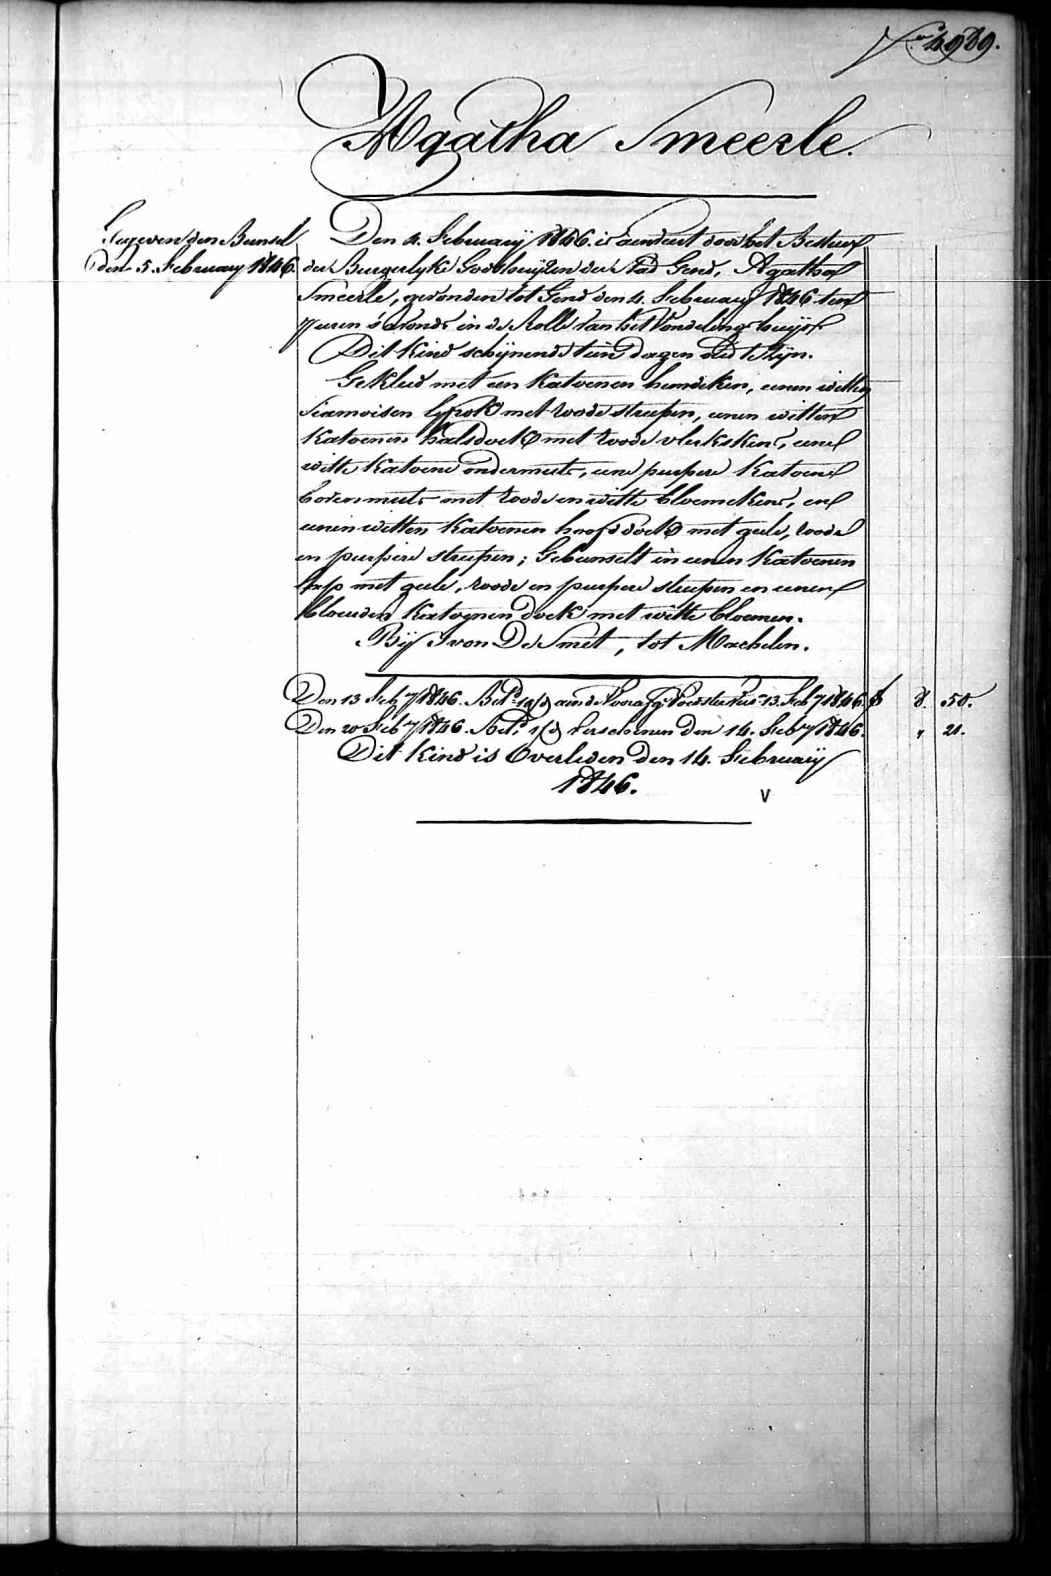 N.º 4989.
Agatha Smeerle.
Gegeven den Bunsel
den 5 February 1846.
Den 4. February 1846. is aenveert door het Bestuer
der Burgerlyke Godshuyzen der Stad Gend, Agatha
Smeerle, gevonden tot Gend den 4. February 1846 ten
7 uren s'avonds in de Rolle van het Vondelinghuys.
Dit Kind schynende tien dagen oud te zyn.
Gekleed met een Katoenen hemdeken, eenen witten
Siamoisen Lyfrok met roode streepen, eenen witten
Katoenen halsdoek met roode vlekskens, eene
witte Katoene ondermuts, eene purpere Katoene
bovenmuts met roode en witte bloemekens, en
eenen witten Katoenen hoofddoek met geele, roode
en purpere streepen; Gebunselt in eenen Katoenen
lap met geele, roode en purpere streepen en eenen
blauwen Katoenen doek met witte bloemen.
By Ivon De Smet, tot Machelen.
Den 13 Feb.ry 1846. Bet.d aen de Voedster 13. Feb.ry 1846. f 8. 50.
Den 20 Feb.ry 1846. Bet.d verschenen den 14. Feb.ry 1846. " 21.
Dit Kind is Overleden den 14. February
1846.
V